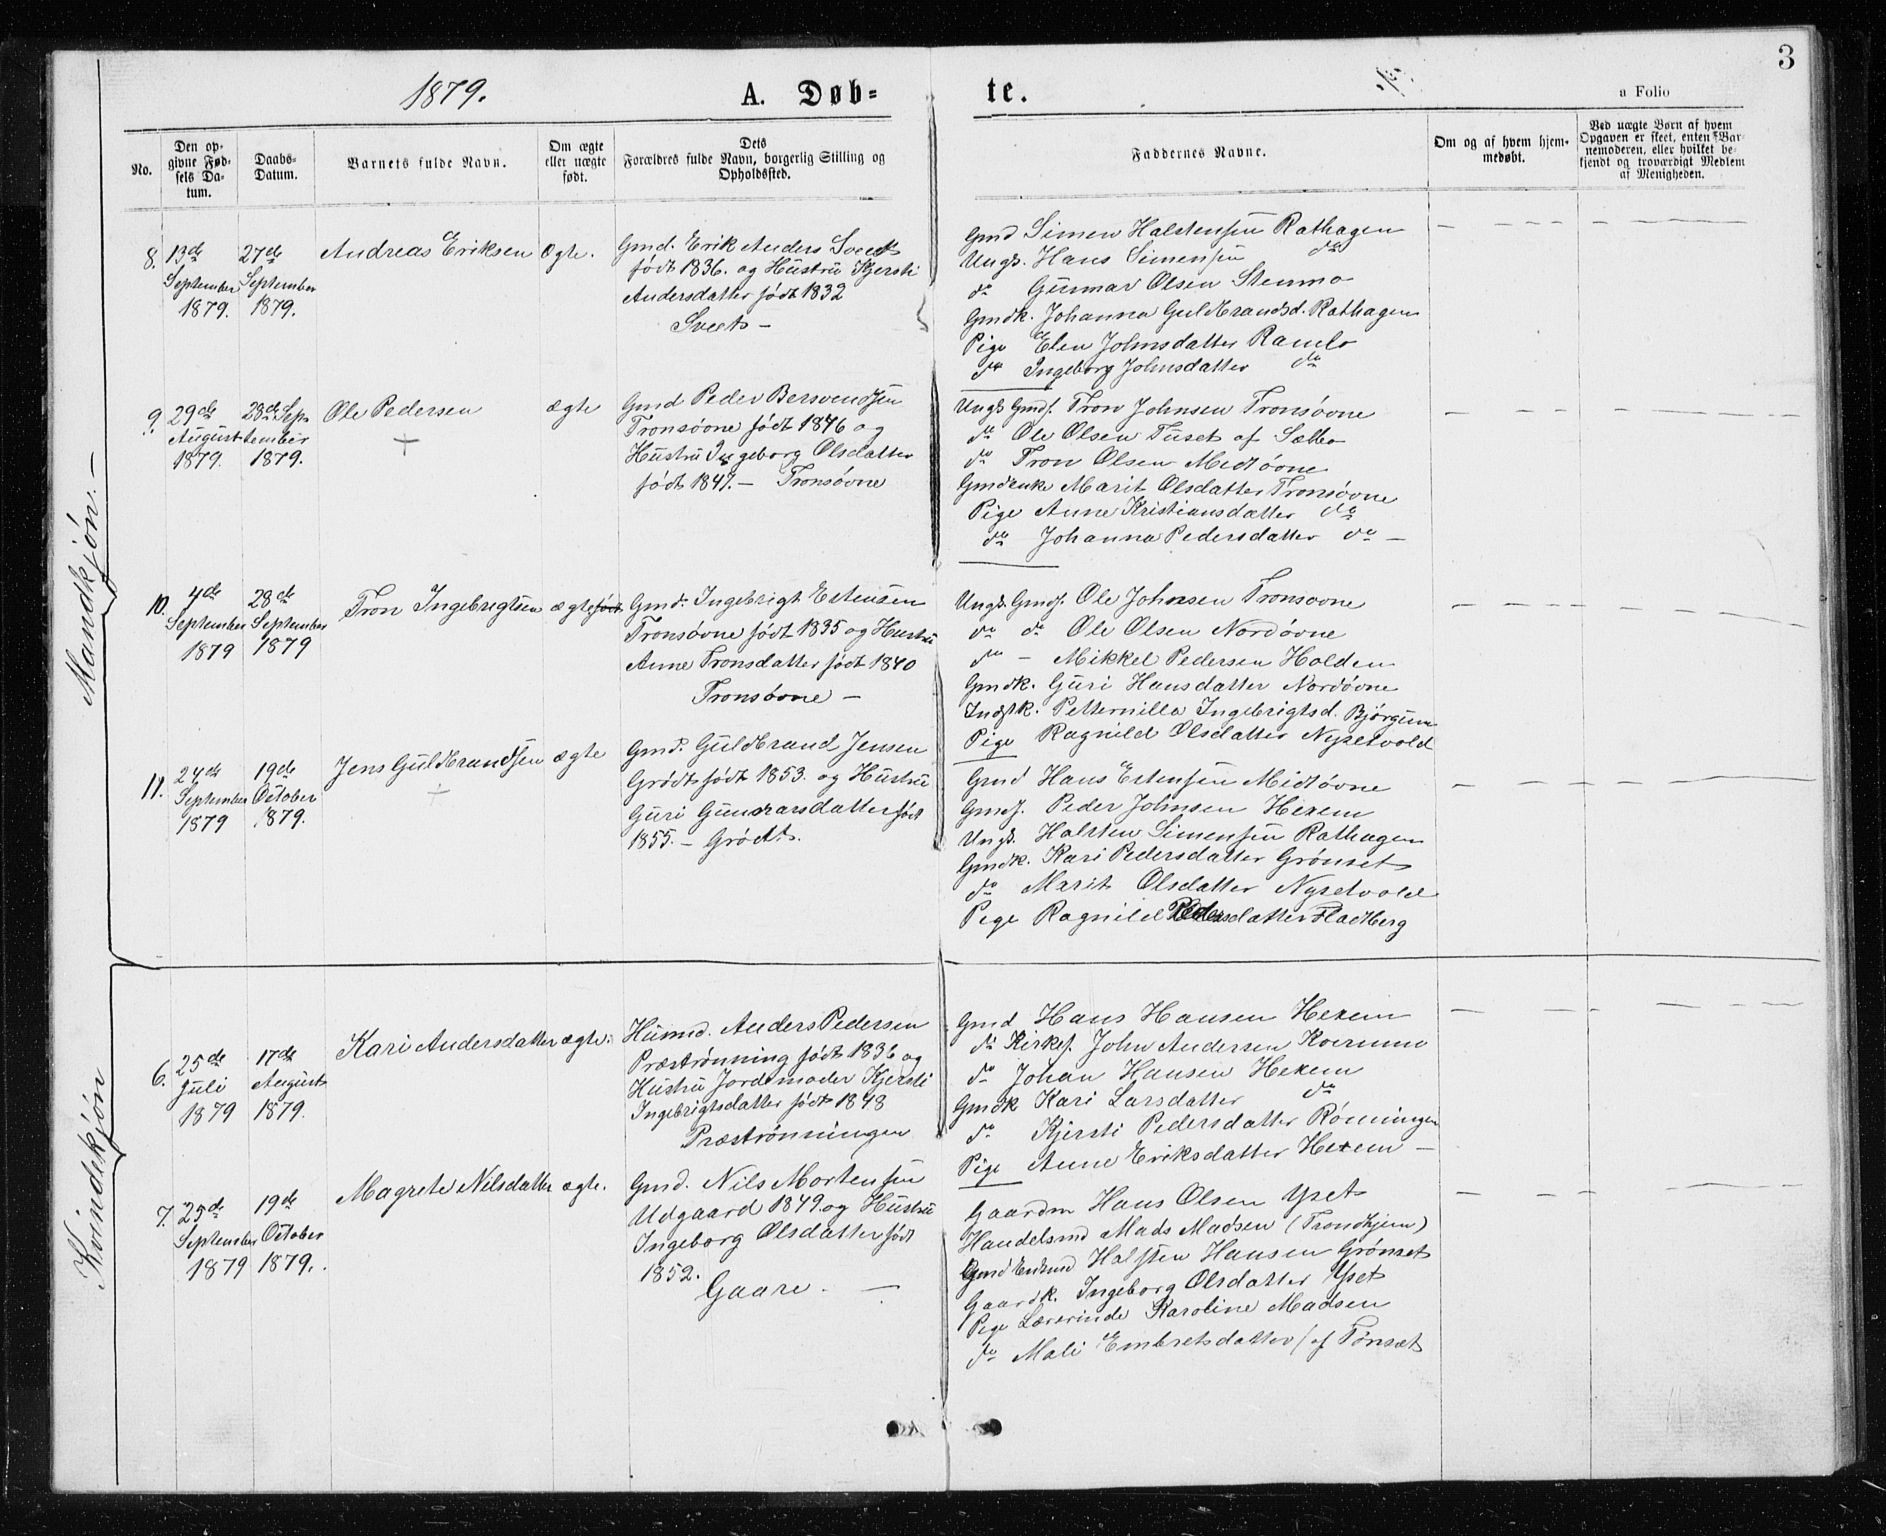 3
1879.
A. Døb-
te.
a Folio
No.
Den op-
givne Fød-
sels Da-
tum.
Daabs-
Datum.
Barnets fulde Navn.
Om ægte
eller uægte
født.
Dets
Forældres fulde Navn, borgerlig Stilling og
Opholdssted.
Faddernes Navne.
Om og af hvem hjem-
medøbt.
Ved uægte Børn af hvem
Opgaven er skeet, enten af Bar-
nemoderen, eller hvilket be-
kjendt og troværdigt Medlem
af Menigheden.
Mandkjøn.—
8.
13de
September
1879.
27de
September
1879.
Andreas Eriksen
Ægte.
Gmd. Erik Anders Sveets
født 1836. og Hustru Kjersti
Andersdatter født 1832
Sveets —
Gmd Simen Halstensen Rathagen
Ungk. Hans Simensen do
do Gunnar Olsen Stenmo
Gmdk. Johanna Guldbrandsd. Rathagen
Pige Elen Johnsdatter Ramlo
do Ingeborg Johnsdatter do
9.
29de
August
1879.
28de Sep-
tember
1879.
Ole Pedersen
+
ægte
Gmd Peder Bersvendsen
Tronsøvne født 1846 og
Hustru Ingeborg Olsdatter
født 1847. — Tronsøvne
Ungk Gmds. Tron Johnsen Tronsøvne
do Ole Olsen Tuset af
do Tron Olsen Midtøvne
Gmdenke Marit Olsdatter Tronsøvne
Pige Anne Kristiansdatter do
do Johanna Pedersdatter do —
10.
4de
September
1879
28de
September
1879
Tron Ingebrigtsen
ægte født
Gmd. Ingebrigt Estensen
Tronsøvne født 1835 og Hustru
Anne Tronsdatter født 1840
Tronsøvne —
Ungk. Gmds. Ole Johnsen Tronsovne
do do Ole Olsen Nordøvne
do — Mikkel Pedersen Holden
Gmdk. Guri Hansdatter Nordøvne
Indstk. Petternilla Ingebrigtsd. Bjørgum
Pige Ragnild Olsdatter Nysetvold
11.
24de
September
1879
19de
October
1879.
Jens Guldbrandsen
+
ægte
Gmd. Guldbrand Jensen
Grødt født 1853. og Hustru
Guri Gunnarsdatter født
1855. — Grødt.
Gmd Hans Estensen Midtøvne
Gmds. Peder Johnsen Hexem
Ungk. Halsten Simensen Rathagen
Gmdk. Kari Pedersdatter Grønset
do Marit Olsdatter Nysetvold
Pige Ragnild Pedersdatter Fladberg
Kvindekjøn
6.
25de
Juli
1879
17de
August
1879.
Kari Andersdatter
ægte.
Husmd. Anders Pedersen
Præstrønning født 1836 og
Hustru Jordemoder Kjersti
Ingebrigtsdatter født 1848
Præstrønningen
Gmd Hans Hansen Hexem
do Kirkes. John Andersen Kvernmo
do Johan Hansen Hexem
Gmdk Kari Larsdatter do
do Kjersti Pedersdatter Rønningen
Pige Anne Eriksdatter Hexem —
7.
25de
September
1879
19de
October
1879.
Magrete Nilsdatter
ægte.
Gmd. Nils Mortensen
Udgaard 1849. og Hustru
Ingeborg Olsdatter født
1852.
Gaare. —
Gaardm Hans Olsen Yset
Handelsmd Mads Madsen (Trondhjem)
Gmd Enkmd Halsten Hansen Grønset
Gaardk. Ingeborg Olsdatter Yset
Pige Lærerinde Karoline Madsen
do Mali Embretsdatter (af Tønset